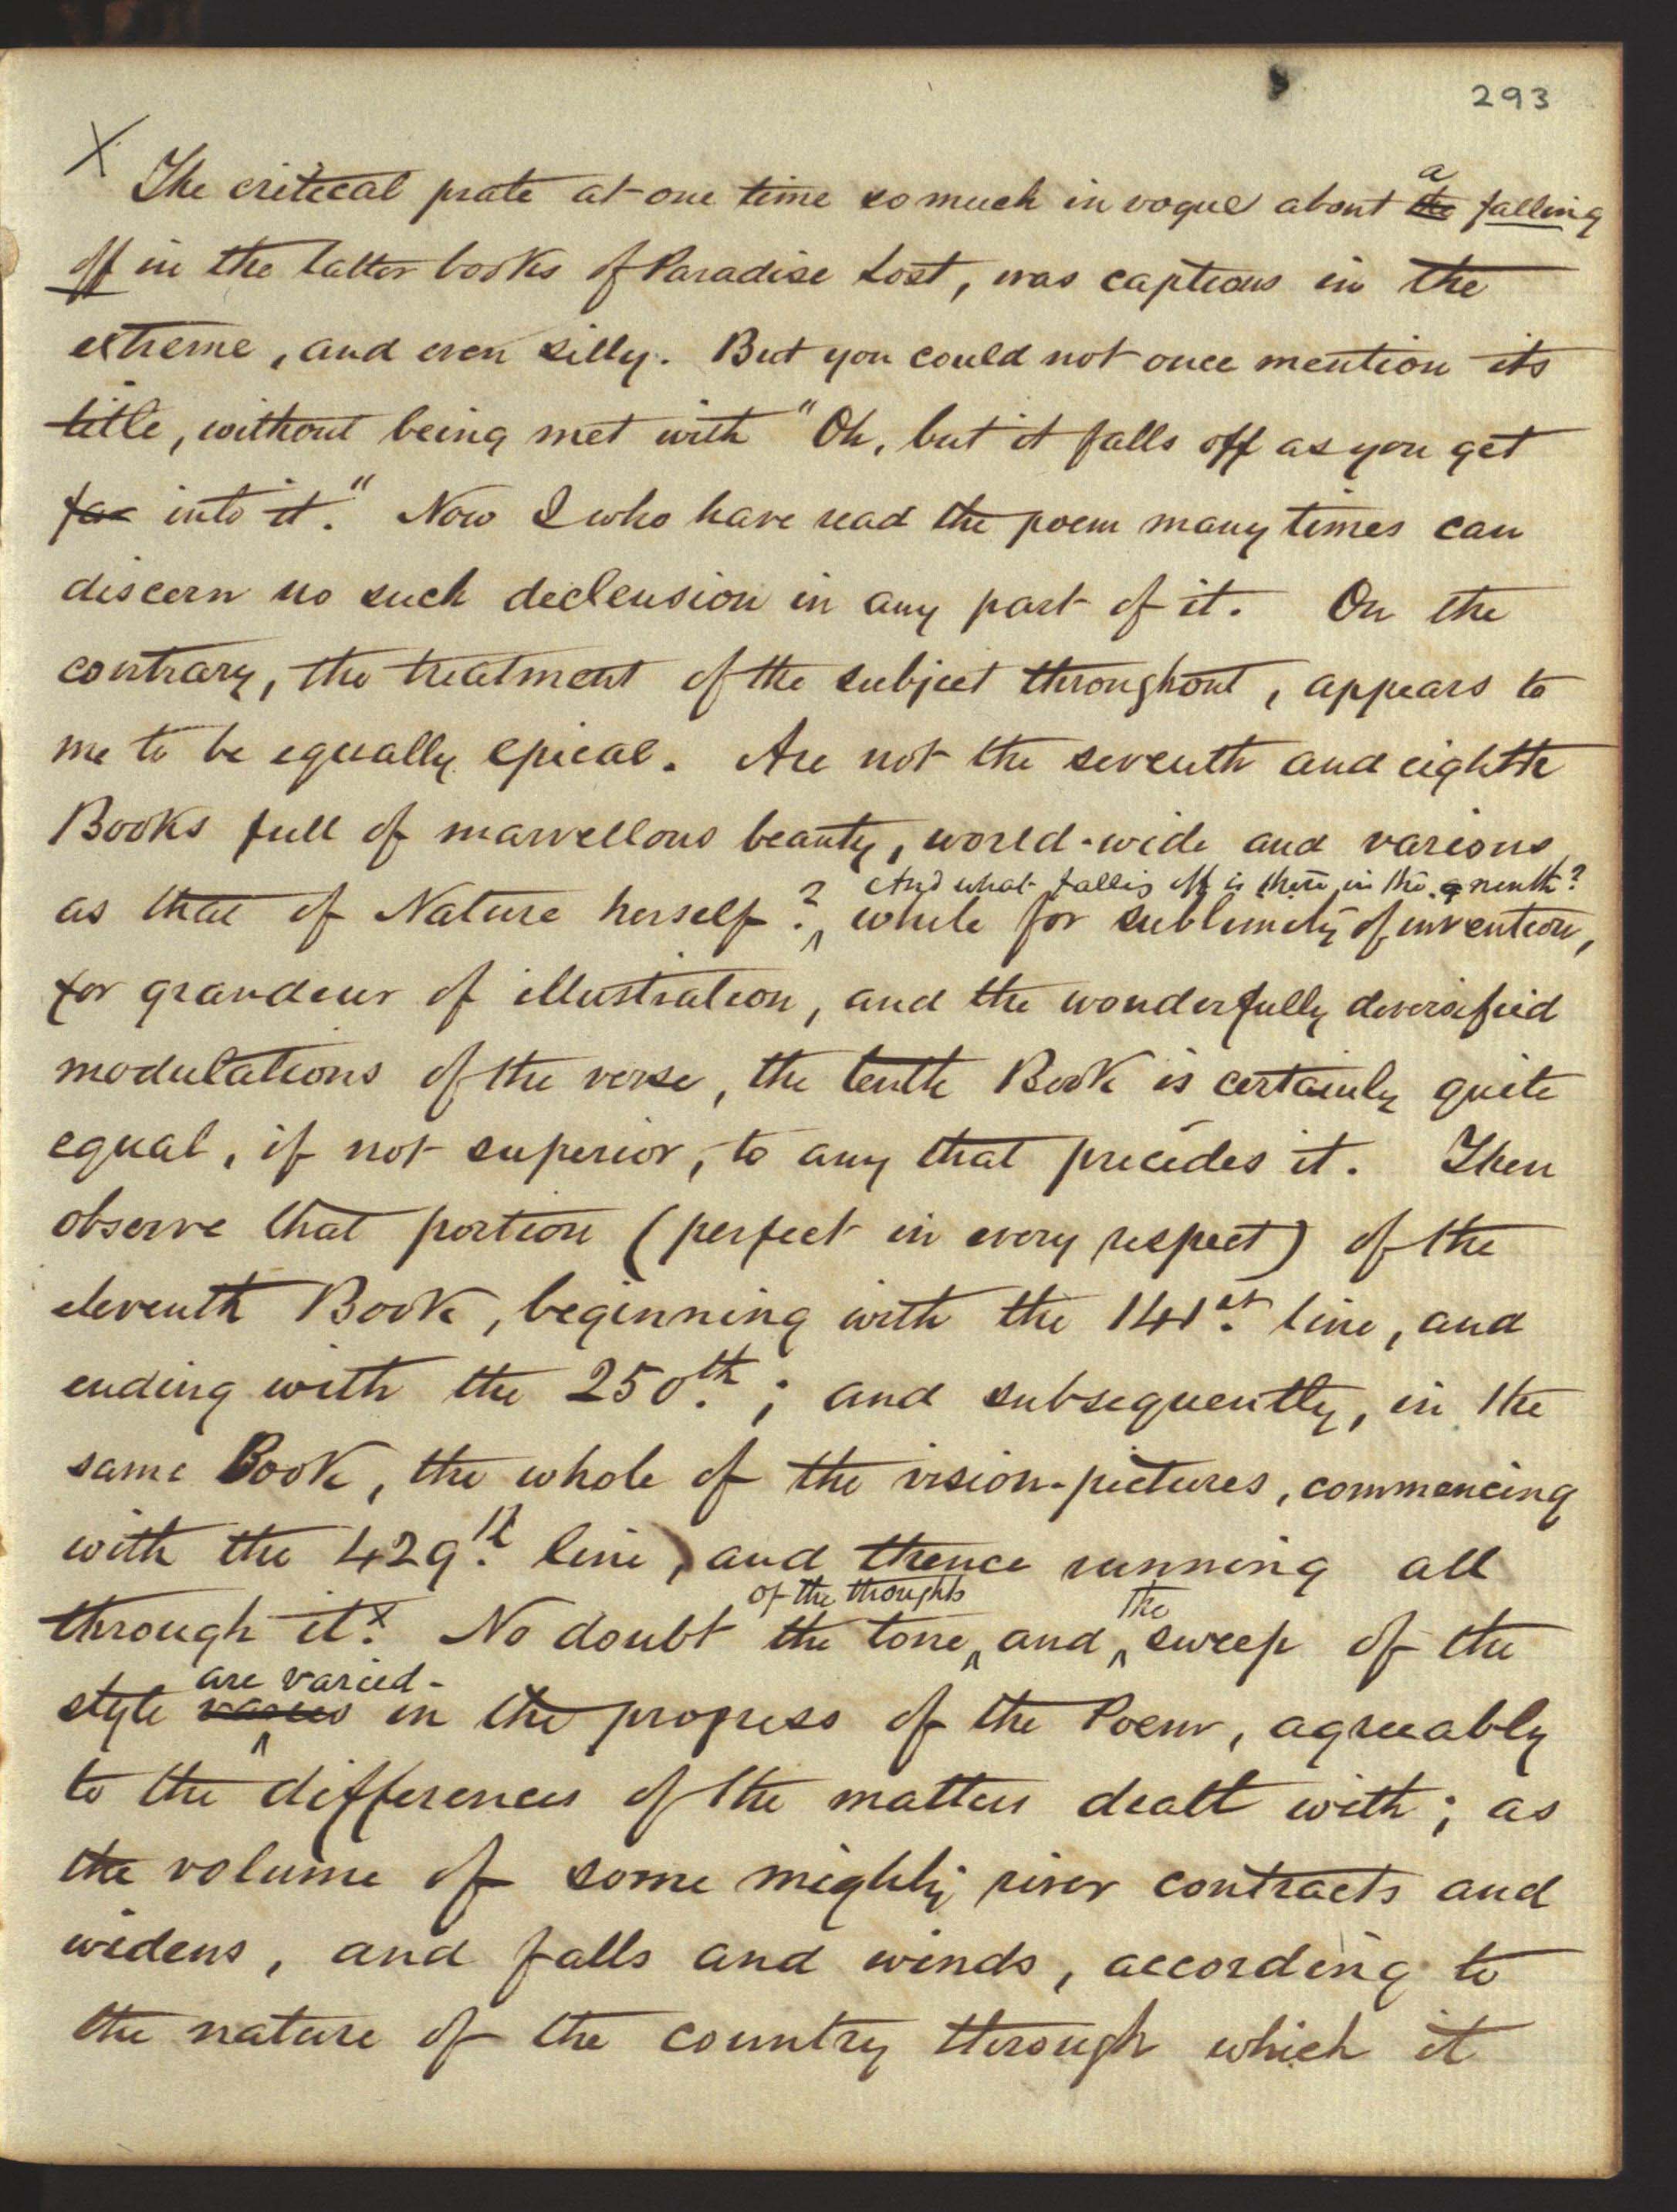 293
X The critical prate at one time so much in vogue about a the falling
off in the latter books of Paradise Lost, was captious in the
extreme, and even silly. But you could not once mention its
title, without being met with "Oh, but it falls off as you get
far into it." Now I who have read the poem many times can
discern no such declension in any part of it. On the
contrary, the treatment of the subject throughout, appears to
me to be equally epical. Are not the seventh and eighth
Books full of marvellous beauty, world-wide and various
And what falling off is there in the ninth?
as that of Nature herself? while for sublimity of invention,
for grandeur of illustration, and the wonderfully diversified
modulations of the verse, the tenth Book is certainly quite
equal, if not superior, to any that precedes it. Then
observe that portion (perfect in every respect) of the
eleventh Book, beginning with the 141st. line, and
ending with the 250th.; and subsequently, in the
same Book, the whole of the vision-pictures, commencing
with the 429th. line, and thence running all
of the thoughts the
through it.x No doubt the tone, and sweep of the
are varied
style varies in the progress of the Poem, agreeably
to the differences of the matters dealt with; as
the volume of some mighty river contracts and
widens, and falls and winds, according to
the nature of the country through which it